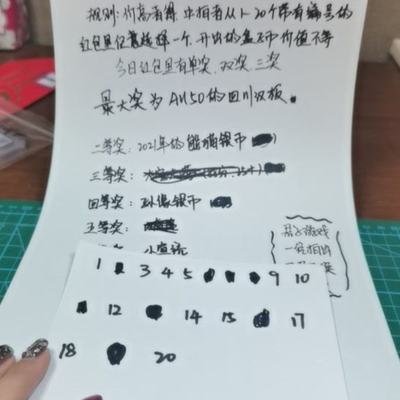 规则:价高者得,中拍者从1-20个带有编号的
红包里任意选择一个,开出的盒子币价值不等
今日红包里有单奖,双奖,三奖
最大奖为AU50的四川汉板。
二等奖:2021年的熊猫银币
三等奖:
四等奖:孙像银币
五等奖:
小宣统
游戏
一经相中
1 3 4 5 9 10
12 14 15 17
18 20